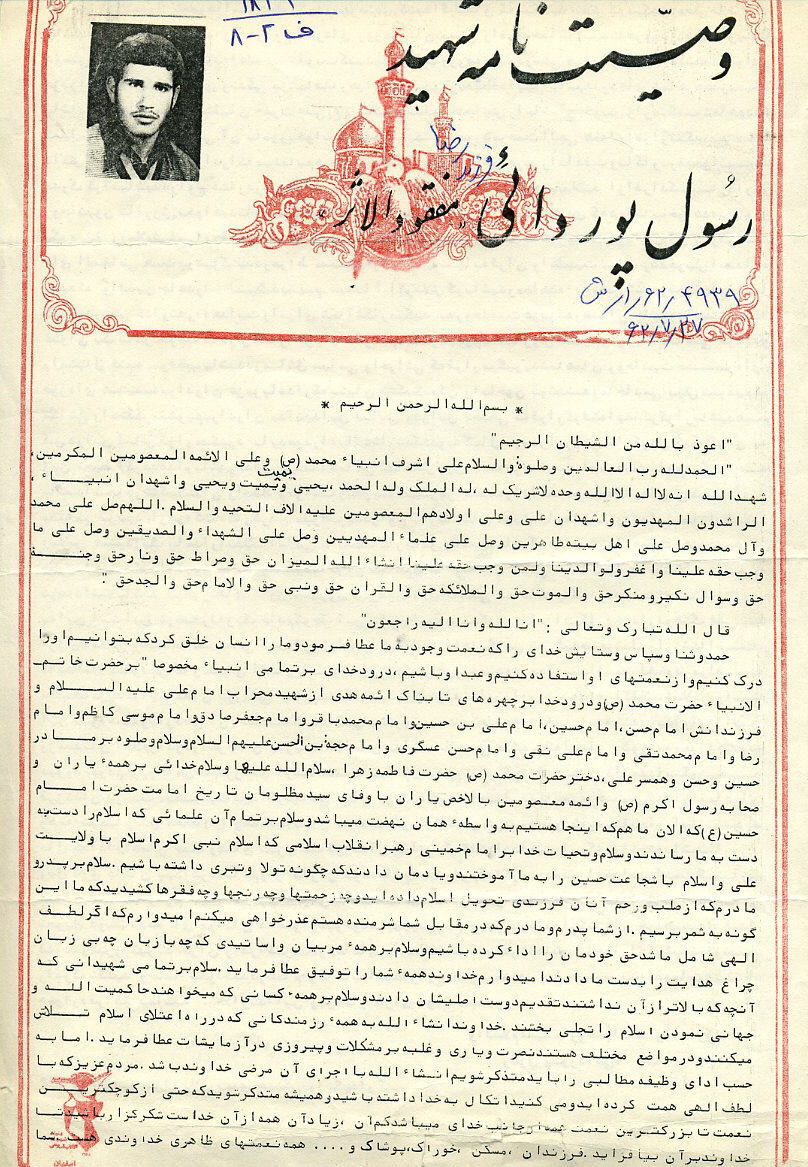 ۱۸۲۱
ف ۲-۸
وصیتنامه شهید
فرزند رضا
رسول پوروالیٔ «مفقودالاثر»
۶۲/۴۹۳۹/ارش
۶۲/۷/۲۷
* بسم الله الرحمن الرحیم *
"اعوذ بالله من الشیطان الرجیم"
"الحمدلله رب العالمین وصلوة والسلام علی اشرف انبیاء محمد (ص) وعلی الائمه المعصومین المکرمین،
شهدالله انه لااله الاالله وحده لاشریک له ،له الملک وله الحمد ،یحیی ویمیت ویمیت ویحیی واشهدان انبیـــاء ،
الراشدون المهدیون واشهدان علی وعلی اولادهم المعصومین علیه الاف التحیه والسلام .اللهم صل علی محمد
وآل محمدوصل علی اهل بیته طاهرین وصل علی علماء المهدیین وصل علی الشهداء والصدیقین وصل علی ما
وجب حقه علینا واغفرولوالدینا ولمن وجب حقه علینا انشاء الله المیزان حق وصراط حق ونارحق وجنـــة
حق وسوال نکیرومنکرحق والموت حق والملائکه حق والقران حق ونبی حق والامام حق والجدحق "
قال الله تبارک وتعالی :"انالله وانا الیه راجعون"
حمدوثنا وسپاس وستایش خدای را که نعمت وجودبه ما عطا فرمودوما را انسان خلق کردکه بتوانیم اورا
درک کنیم واز نعمتهای اواستفاده کنیم وعبداوباشیم ،درودخدای برتمامی انبیاء مخصوصا "برحضرت خاتم
الانبیاء حضرت محمد (ص) ودرودخدا برچهره های تابناک ائمه هدی ازشهیدمحراب امام علی علیه الســـلام و
فرزندانش امام حسن ،امام حسین ،امام علی بن حسین وامام محمدباقروامام جعفرصادق وامام موسی کاظم وامام
رضا وامام محمدتقی وامام علی نقی وامام حسن عسکری وامام حجة بن الحسن علیهم السلام وسلام وصلوه برمـــادر
حسین وحسن وهمسرعلی ،دخترحضرت محمد (ص) حضرت فاطمه زهرا ،سلام الله علیها وسلام خدائی برهمه یاران و
صحابه رسول اکرم (ص) وائمه معصومین بالاخص یاران باوفای سیدمظلومان تاریخ امامت حضرت امـــام
حسین (ع) که الان ماهم که اینجا هستیم به واسطه همان نهضت میباشدوسلام برتمام آن علمائی که اسلام را دست به
دست به ما رساندندوسلام وتحیات خدابرامام خمینی رهبرانقلاب اسلامی که اسلام نبی اکرم اسلام با ولایـــت
علی واسلام باشجاعت حسین را به ما آموختندویادمان دادندکه چگونه تولا وتبری داشته باشیم .سلام برپدرو
مادرم که ازصلب ورحم آنان فرزندی تحویل اسلام داده ایدوچه زحمتها وچه رنجها وچه فقرها کشیدیدکه ما این
گونه به ثمربرسیم .ازشما پدرم ومادرم که درمقابل شما شرمنده هستم عذرخواهی میکنم امیدوارم که اگرلطف
الهی شامل ماشدحق خودمان را اداء کرده باشیم وسلام برهمه مربیان واساتیدی که چه بازبان چه بی زبان
چراغ هدایت را بدست ما دادندامیدوارم خداوندهمه شما راتوفیق عطا فرماید .سلام برتمامی شهیدانی که
آنچه که بالاتراز آن نداشتندتقدیم دوست اصلیشان دادندوسلام برهمه کسانی که میخواهندحاکمیت اللـــه و
جهانی نمودن اسلام راتجلی بخشند .خداوندانشاء الله به همه رزمندکانی که درراه اعتلای اسلام تـــلاش
میکنندودرمواضع مختلف هستندنصرت ویاری وغلبه برمشکلات وپیروزی درآزمایشات عطا فرماید .اما به
حسب ادای وظیفه مطالبی رابایدمتذکرشویم انشاء الله با اجرای آن مرضی خداوندباشد .مردم عزیزکه با
لطف الهی همت کرده ایدومی کنیداتکال به خداداشته باشیدوهمیشه متذکرشویدکه حتی ازکوچکتریـــن
نعمت تا بزرکترین نعمت همه ازجانب خدای میباشدکم آن ،زیاد آن همه از آن خداست شکرگزارباشیدتـــا
خداوندبرآن بیافزاید .فرزندان ،مسکن ،خوراک ،پوشاک و .... همه نعمتهای ظاهری خداوندی هست .شما